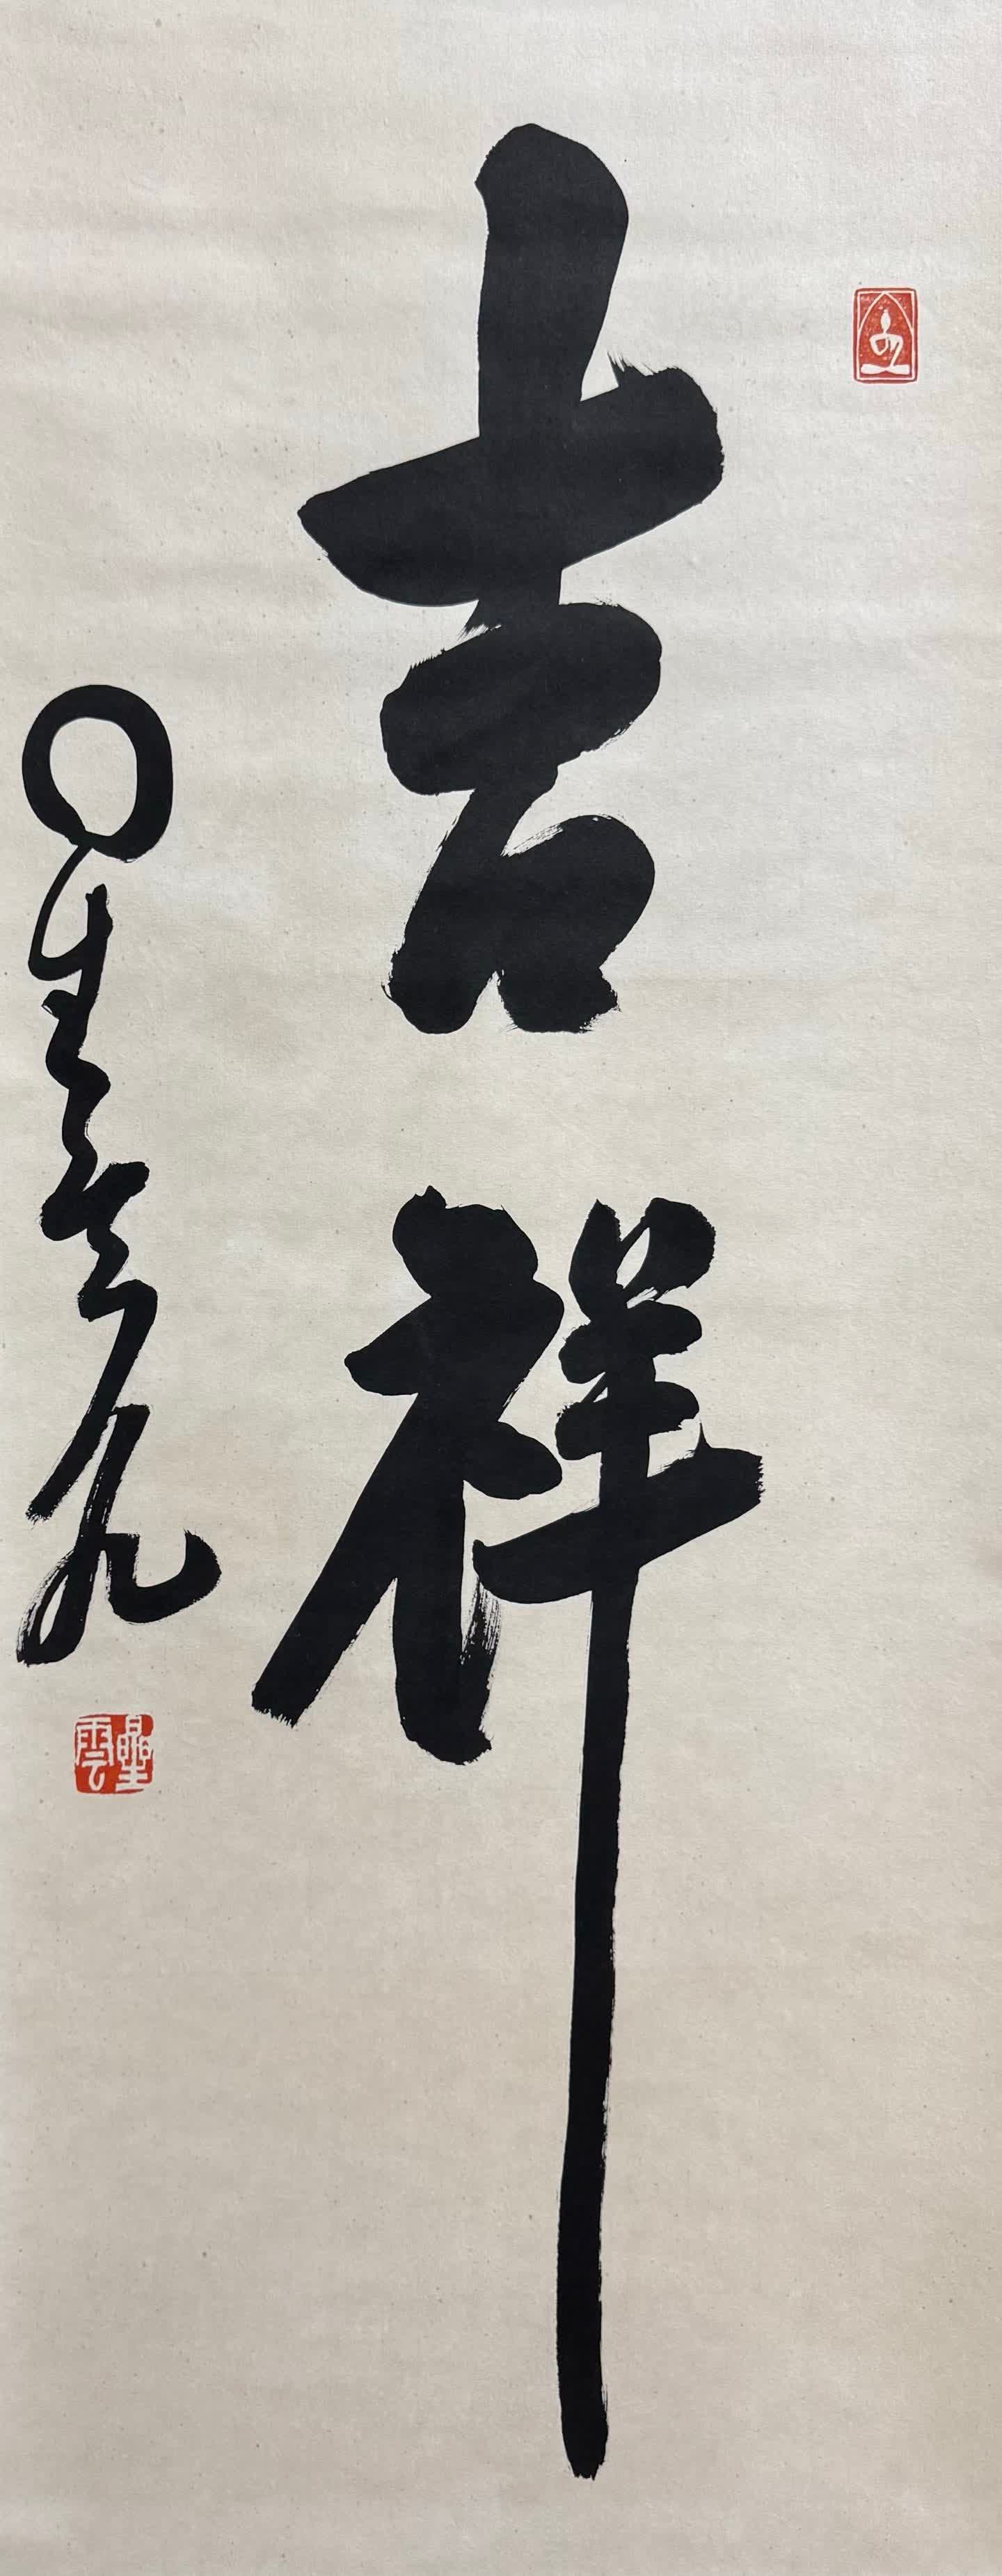 吉祥
星雲 九
星雲